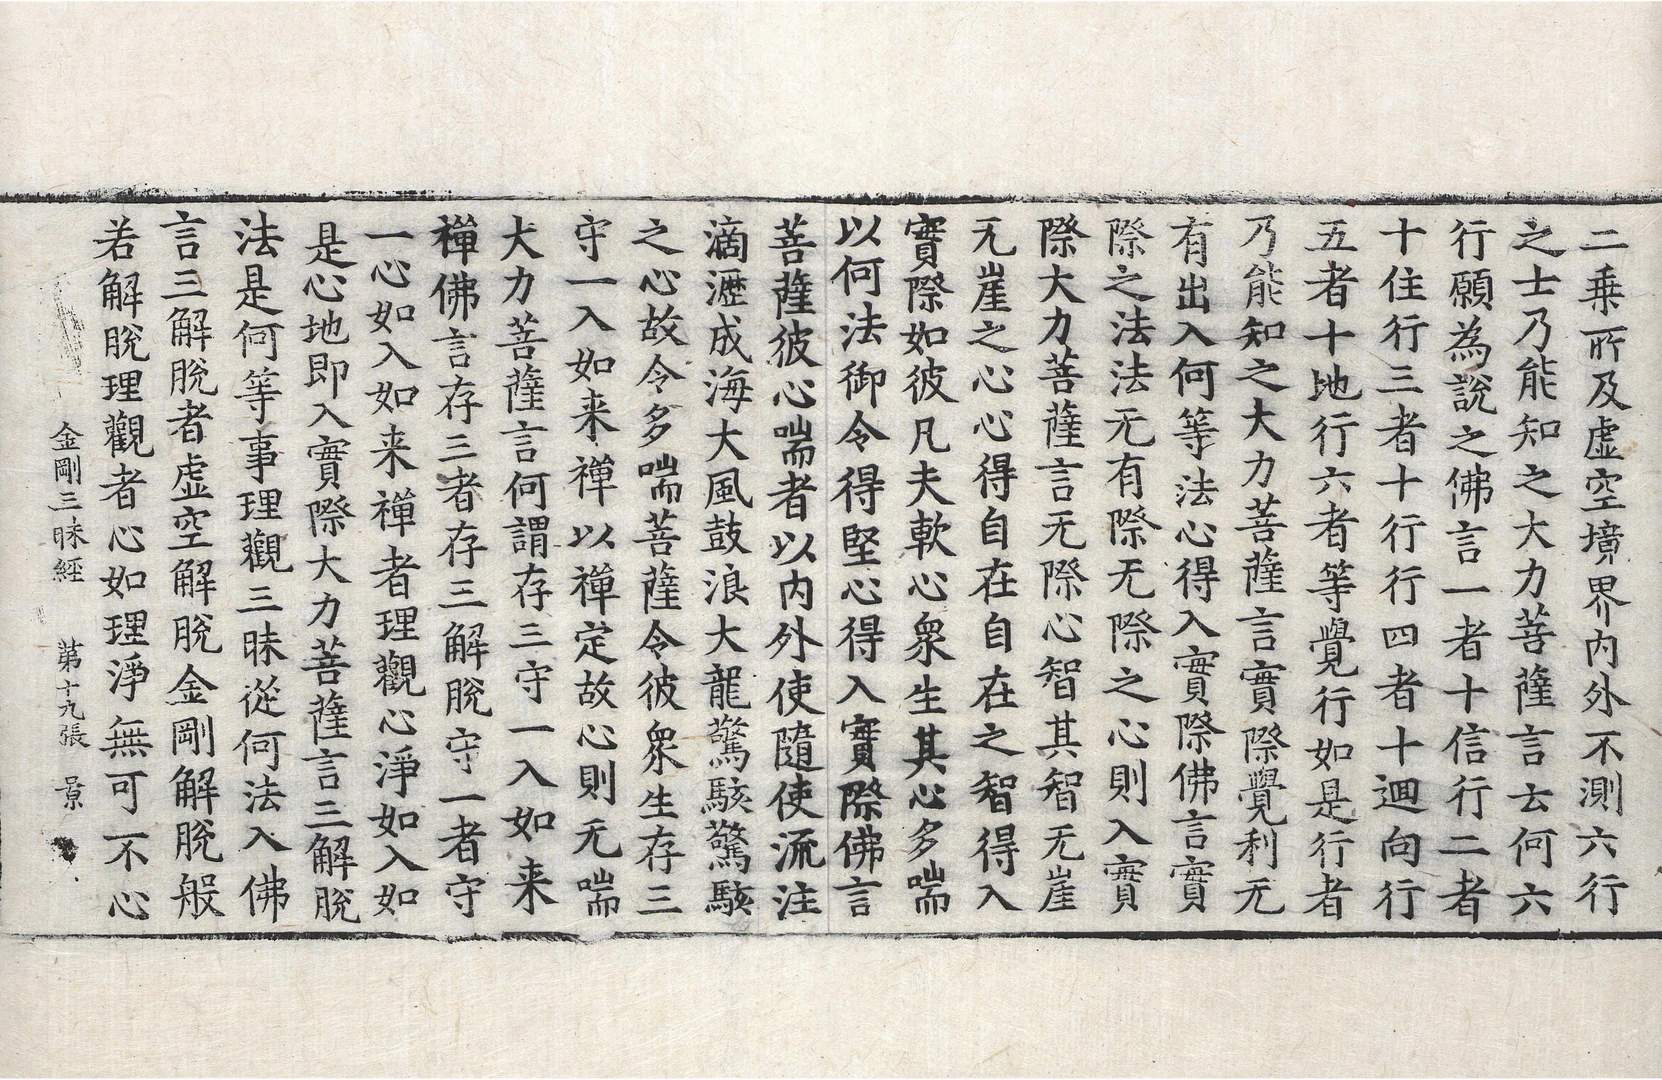 二乗所及虛空境界內外不測六行
之士乃能知之大力菩薩言云何六
行願為說之佛言一者十信行二者
十住行三者十行行四者十迴向行
五者十地行六者等覺行如是行者
乃能知之大力菩薩言實際覺利无
有出入何等法心得入實際佛言實
際之法法无有際无際之心則入實
際大力菩薩言无際心智其智无崖
无崖之心心得自在自在之智得入
實際如彼凡夫軟心衆生其心多喘
以何法御令得堅心得入實際佛言
菩薩彼心喘者以內外使隨使流注
滴瀝成海大風鼓浪大龍驚駭驚駭
之心故令多喘菩薩令彼衆生存三
守一入如来禪以禪定故心則无喘
大力菩薩言何謂存三守一入如来
禪佛言存三者存三解脫守一者守
一心如入如来禪者理觀心淨如入如
是心地即入實際大力菩薩言三解脫
法是何等事理觀三昧從何法入佛
言三解脫者虛空解脫金剛解脫般
若解脫理觀者心如理淨無可不心
金剛三昧經 第十九張 景